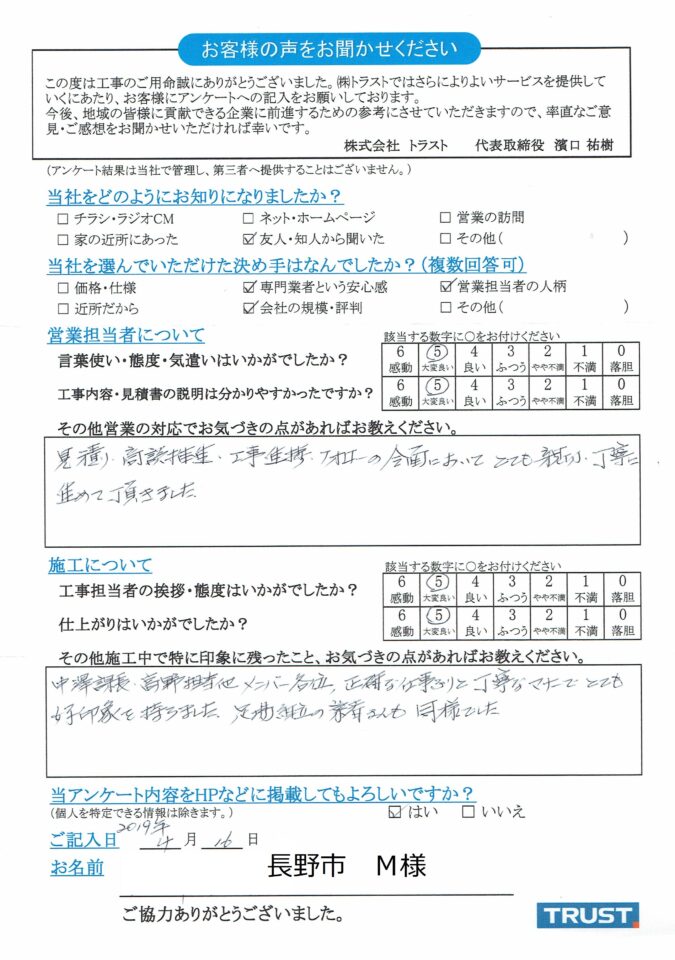 お客様の声をお聞かせください
この度は工事のご用命誠にありがとうございました。㈱トラストではさらによりよいサービスを提供して
いくにあたり、お客様にアンケートへの記入をお願いしております。
今後、地域の皆様に貢献できる企業に前進するための参考にさせていただきますので、率直なご意
見・ご感想をお聞かせいただければ幸いです。
株式会社 トラスト 代表取締役 濱口 祐樹
(アンケート結果は当社で管理し、第三者へ提供することはございません。)
当社をどのようにお知りになりましたか？
☐ チラシ・ラジオCM ☐ ネット・ホームページ ☐ 営業の訪問
☐ 家の近所にあった ☑ 友人・知人から聞いた ☐ その他( )
当社を選んでいただけた決め手はなんでしたか？(複数回答可)
☐ 価格・仕様 ☑ 専門業者という安心感 ☑ 営業担当者の人柄
☐ 近所だから ☑ 会社の規模・評判 ☐ その他( )
営業担当者について 該当する数字に○をお付けください
言葉使い・態度・気遣いはいかがでしたか？ 6 5 4 3 2 1 0
感動 大変良い 良い ふつう やや不満 不満 落胆
工事内容・見積書の説明は分かりやすかったですか？ 6 5 4 3 2 1 0
感動 大変良い 良い ふつう やや不満 不満 落胆
その他営業の対応でお気づきの点があればお教えください。
見積り・商談推進・工事進捗・フォローの全面において とても親切・丁寧に
進めて頂きました
施工について 該当する数字に○をお付けください
工事担当者の挨拶・態度はいかがでしたか？ 6 5 4 3 2 1 0
感動 大変良い 良い ふつう やや不満 不満 落胆
仕上がりはいかがでしたか？ 6 5 4 3 2 1 0
感動 大変良い 良い ふつう やや不満 不満 落胆
その他施工中で特に印象に残ったこと、お気づきの点があればお教えください。
中澤課長・高野担当他メンバー各位、正確な仕事ぶりと丁寧なマナーでとても
好印象を持ちました。足場組立の業者さんも同様でした
当アンケート内容をHPなどに掲載してもよろしいですか？
(個人を特定できる情報は除きます。) ☑ はい ☐ いいえ
2019年
ご記入日 4 月 16 日
お名前 長野市 M様
ご協力ありがとうございました。
TRUST.